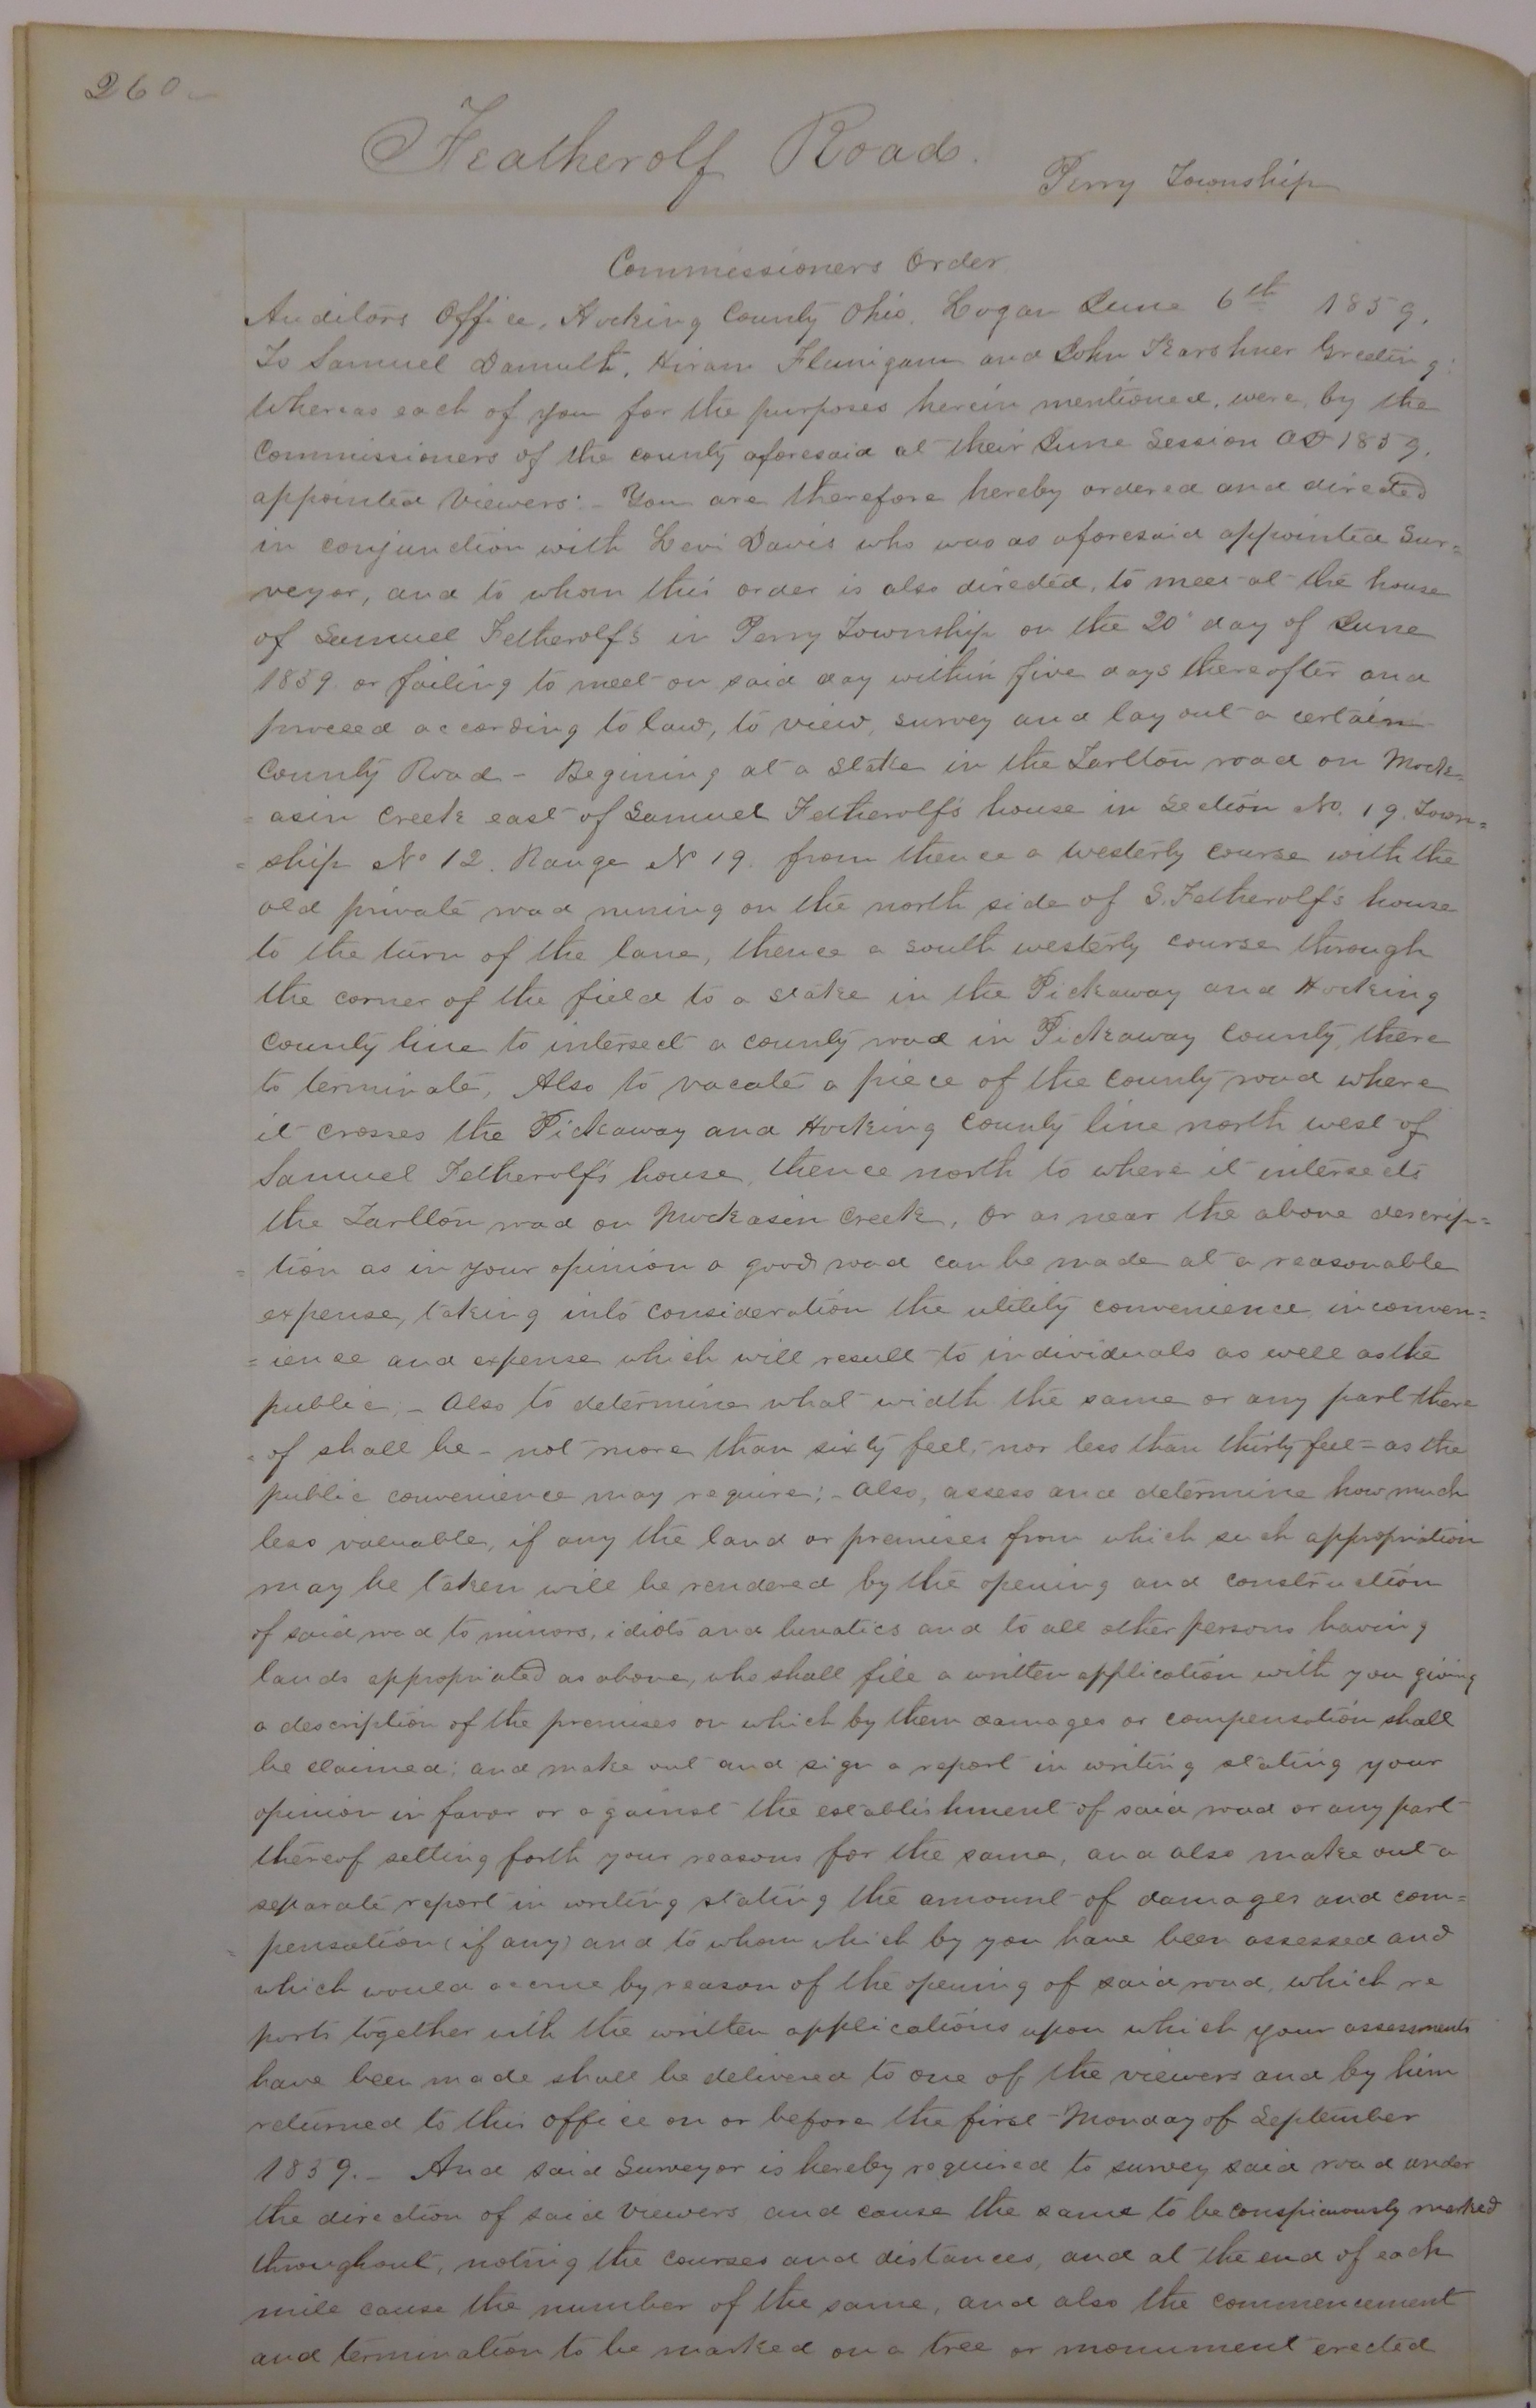 260
Featherolf Road.
Perry Township
Commissioners Order
Auditors Office, Hocking County Ohio. Logan June 6th 1859.
To Samuel Damult, Hiram Flanigann and John Karshner Greeting:
Whereas each of you for the purposes herein mentioned, were, by the
Commissioners of the county aforesaid at their June Session AD 1859.
appointed Viewers:- You are therefore hereby ordered and directed
in conjunction with Levi Davis who was as aforesaid appointed Sur=
veyor, and to whom this order is also directed, to meet at the house
of Samuel Fetherolf's in Perry Township on the 20 day of June
1859. or failing to meet on said day within five days thereafter and
proceed according to law, to view, survey and lay out a certain
County Road - Begining at a Stake in the Tarlton road on Mock=
=asin Creek east of Samuel Fetherolf's house in Section No. 19. Town=
=ship No 12. Range No 19. from thence a westerly course with the
old private road runing on the north side of S. Fetherolf's house
to the turn of the lane, thence a south westerly course through
the corner of the field to a stake in the Pickaway and Hocking
County line to intersect a county road in Pickaway County, there
to terminate, Also to vacate a piece of the County road where
it crosses the Pickaway and Hocking County line north west of
Samuel Fetherolf's house, thence north to where it intersects
the Tarlton road on Mockasin Creek, or as near the above descrip=
=tion as in your opinion a good road can be made at a reasonable
expense, taking into consideration the utility convenience, inconven=
=ience and expense which will result to individuals as well as the
public;- Also to determine what width the same or any part there
=of shall be - not more than sixty feet, nor less than thirty feet - as the
public convenience may require;- Also, assess and determine how much
less valuable, if any the land or premises from which such appropriation
may be taken will be rendered by the opening and construction
of said road to minors, idiots and lunatics and to all other persons having
lands appropriated as above, who shall file a written application with you giving
a description of the premises on which by them damages or compensation shall
be claimed; and make out and sign a report in writing stating your
opinion in favor or against the establishment of said road or any part
thereof setting forth your reasons for the same, and also make out a
separate report in writing stating the amount of damages and com=
=pensation (if any) and to whom which by you have been assessed and
which would accrue by reason of the opening of said road, which re
ports together with the written applications upon which your assessments
have been made shall be delivered to one of the viewers and by him
returned to this office on or before the first Monday of September
1859.- And said Surveyor is hereby required to survey said road under
the direction of said Viewers and cause the same to be conspicuously marked
throughout, noting the courses and distances, and at the end of each
mile cause the number of the same, and also the commencement
and termination to be marked on a tree or monument erected